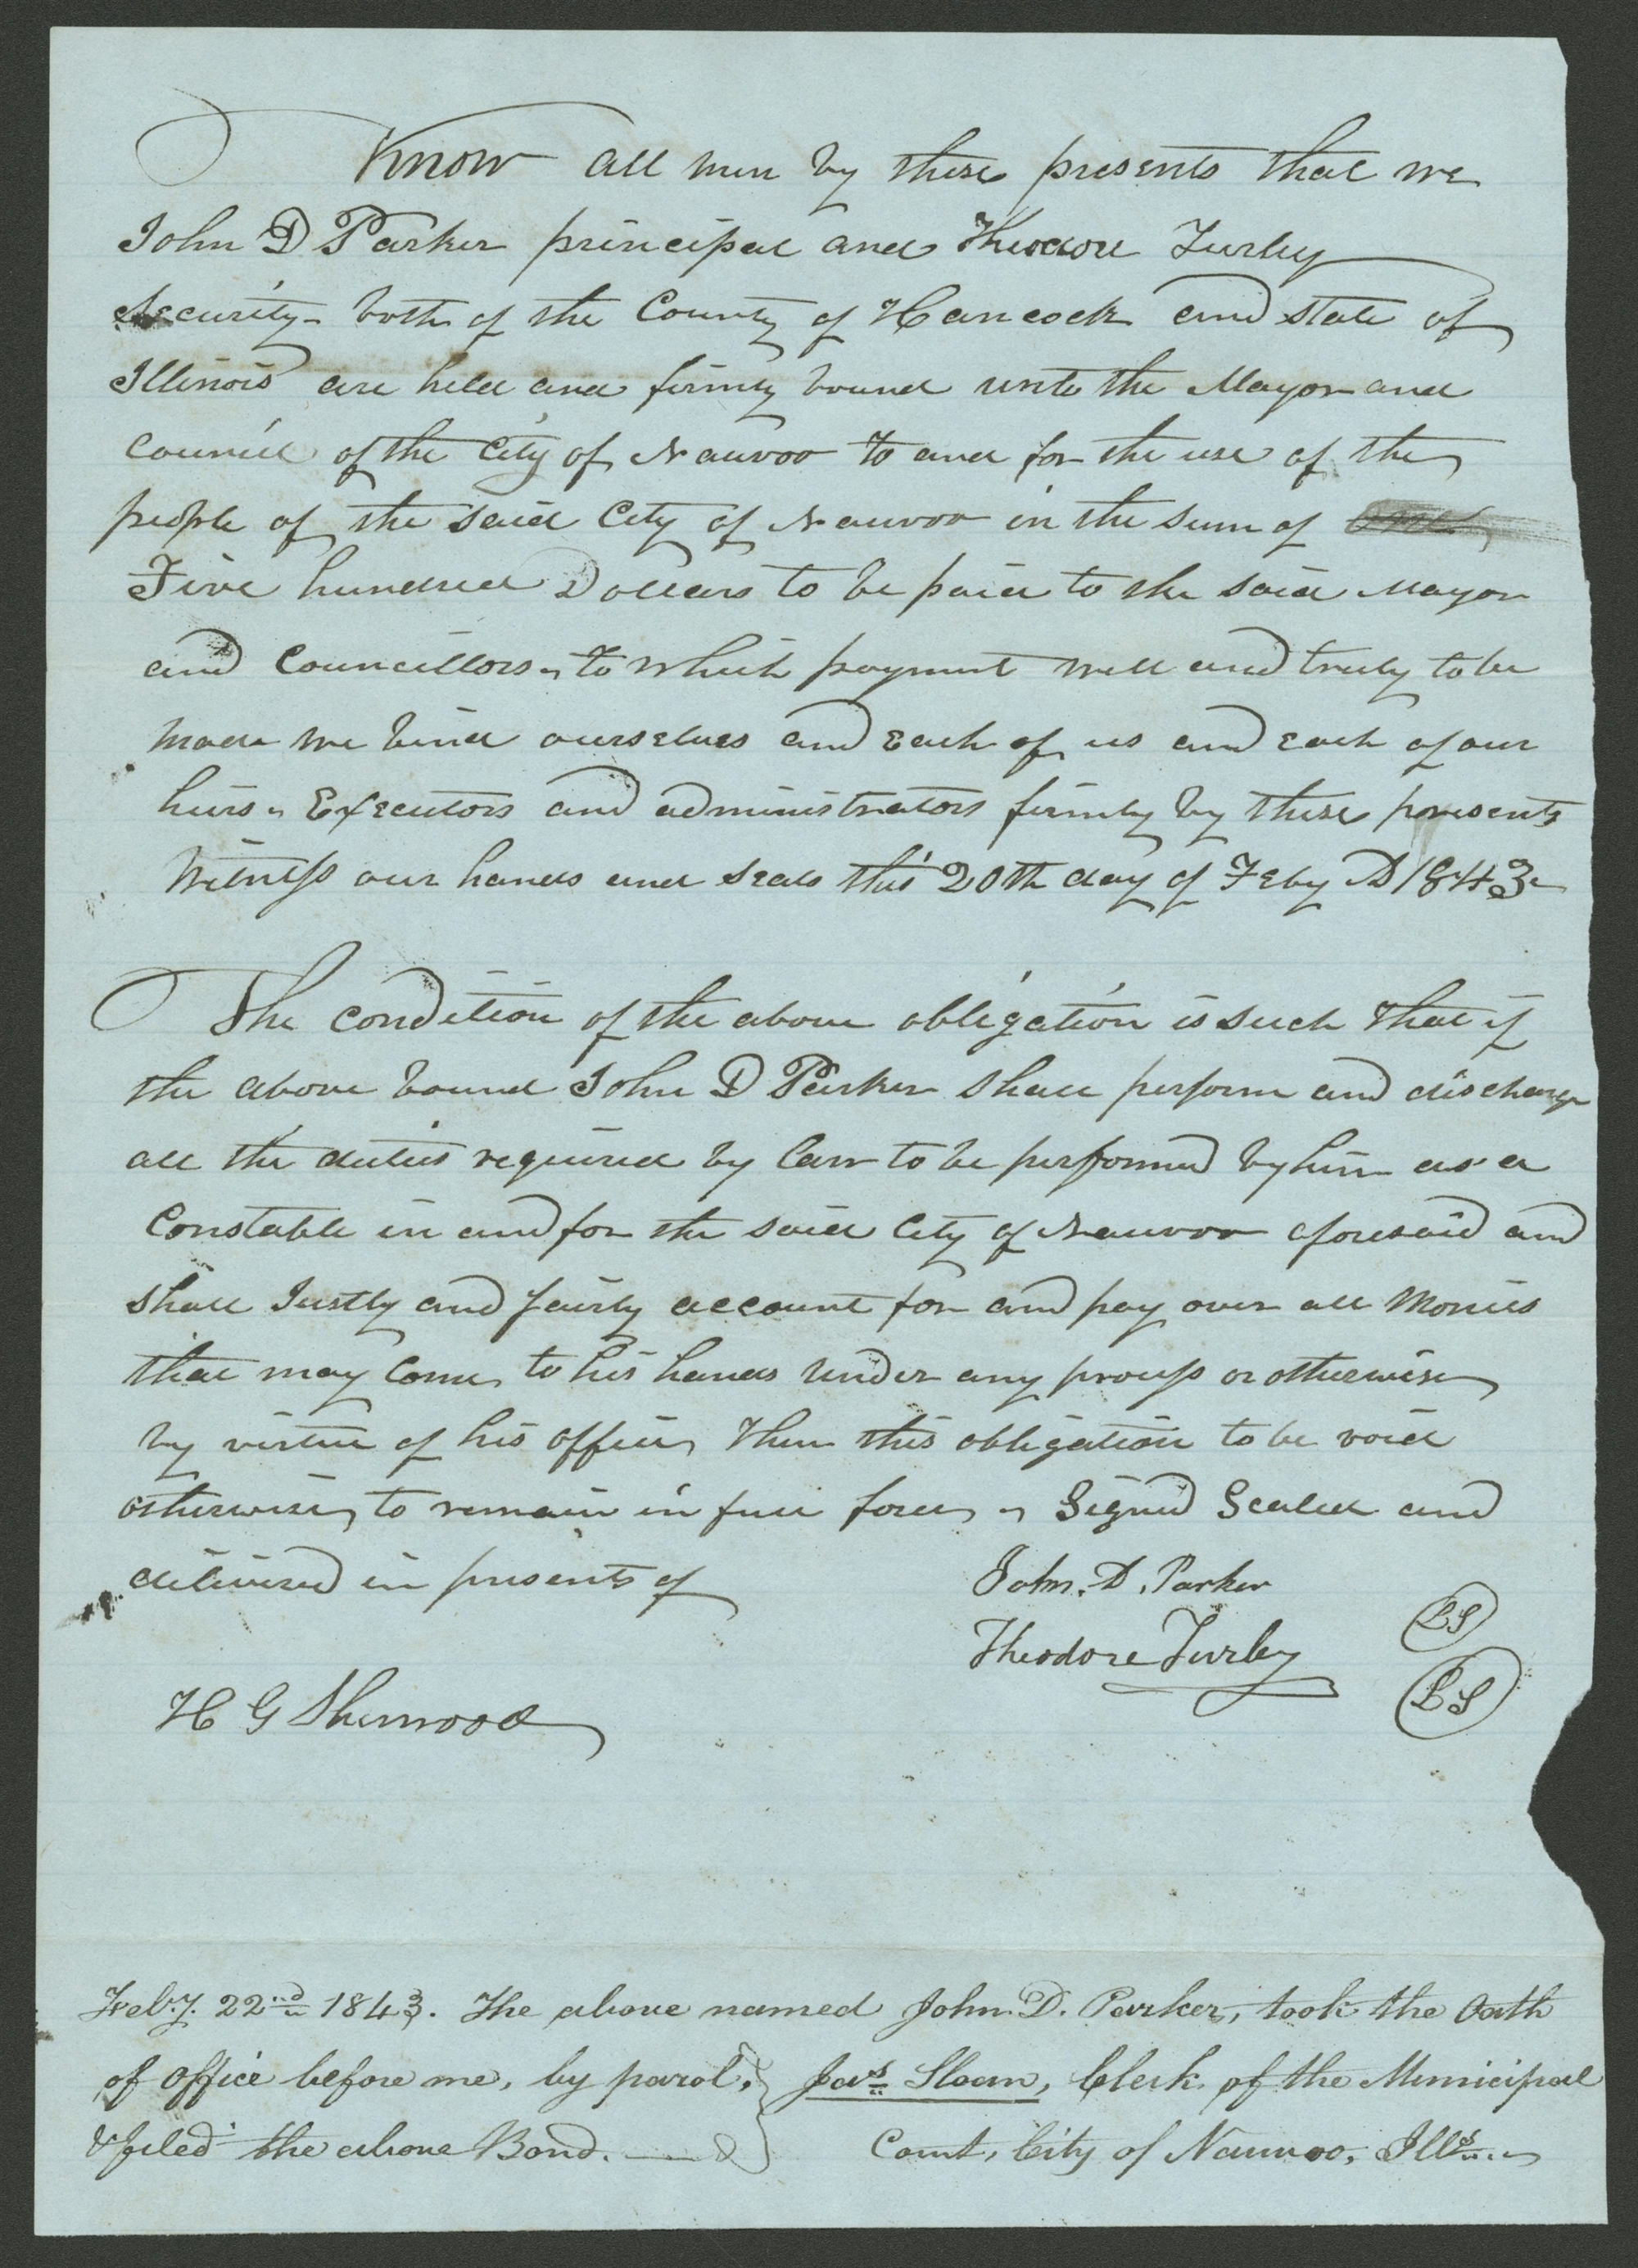 Know all men by these presents that we
John D Parker principal and Theodore Turley
Security - both of the County of Hancock and State of
Illinois are held and firmly bound unto the Mayor and
Council of the City of Nauvoo to and for the use of the
people of the said City of Nauvoo in the sum of
Five hundred Dollars to be paid to the said Mayor
and Councillors, to which payment well and truly to be
made we bind ourselves and Each of us and each of our
heirs, Executors and administrators firmly by these presents
Witness our hands and seals this 20th day of Feby AD 1843
The Condition of the above obligation is such that if
the above bound John D Parker shall perform and discharge
all the duties required by law to be performed by him as a
Constable in and for the said City of Nauvoo aforesaid and
shall Justly and fairly account for and pay over all Monies
that may Come to his hands under any process or otherwise
by virtue of his office, then this obligation to be void
otherwise, to remain in full force, Signed Sealed and
delivered in presents of
John. D. Parker LS
Theodore Turley LS
H G Sherwood
Feb.y. 22nd 1843. The above named John D. Parker, took the Oath
of Office before me, by parol, } Jas Sloan, Clerk of the Municipal
& filed the above Bond. — } Court, City of Nauvoo, Ills.